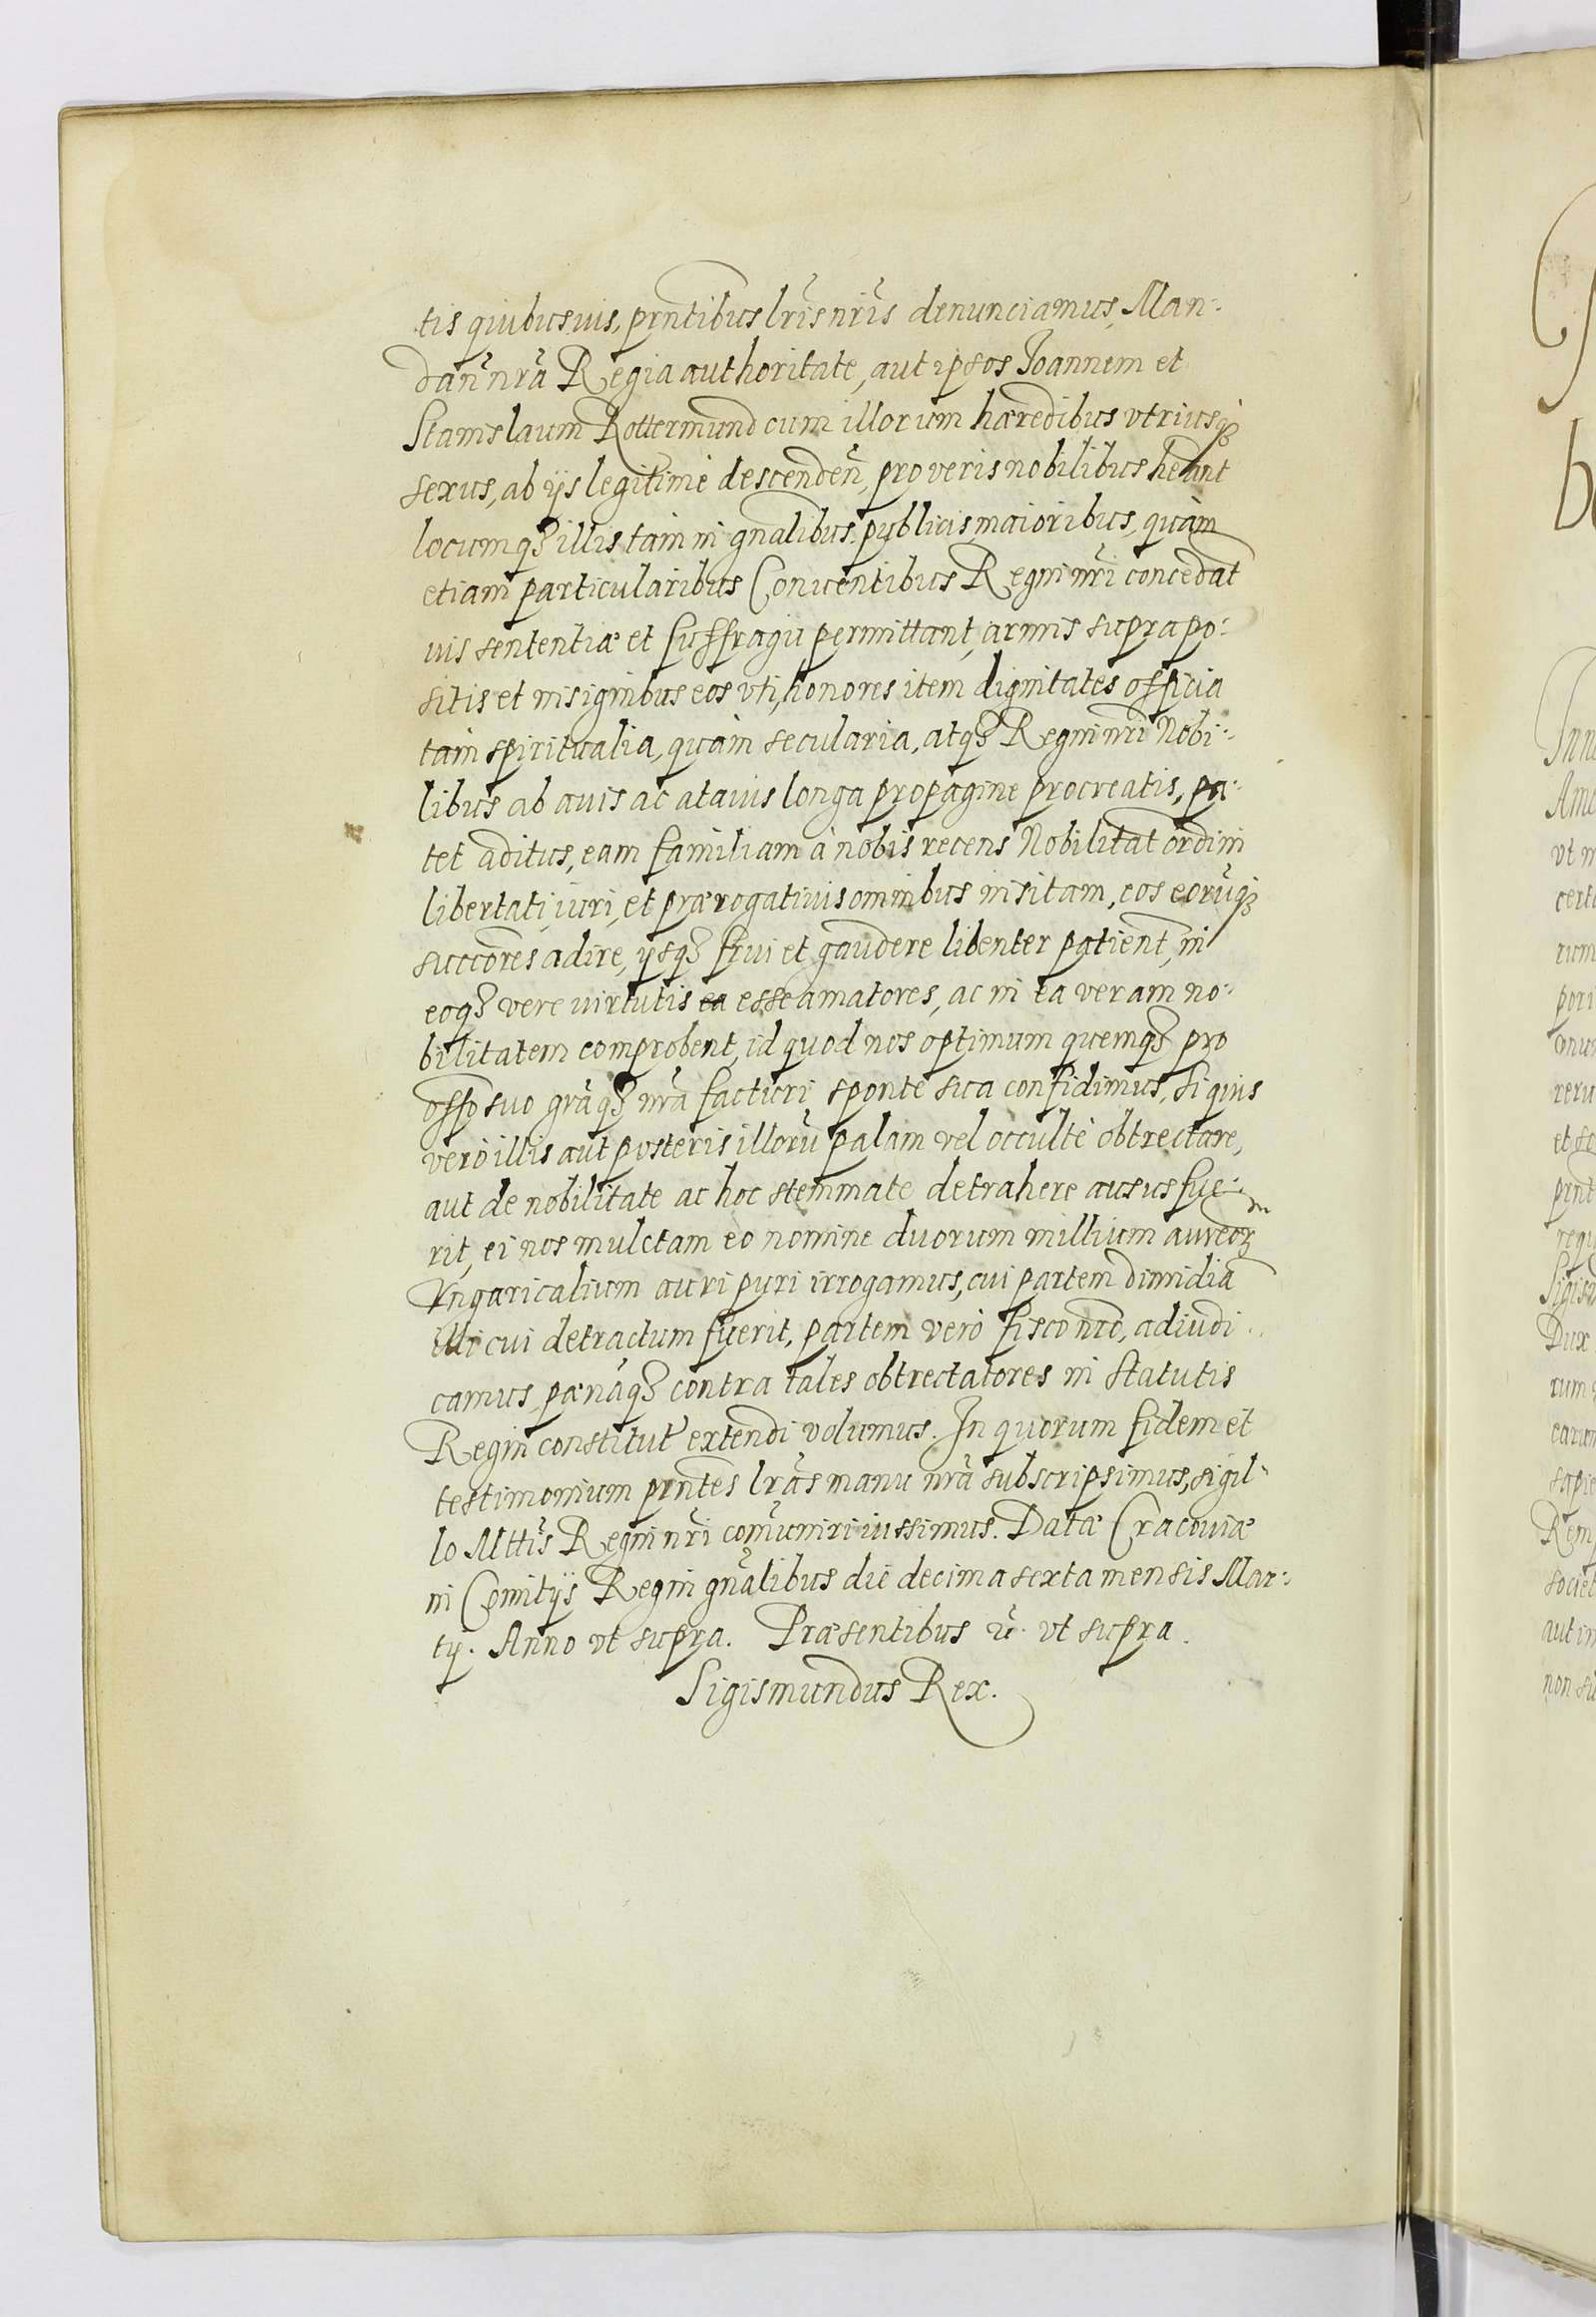 tis quibusuis, prn̄tibus lrīs nrīs denunciamus, Man-
dan̄ nrā Regia authoritate, aut ipsos Joannem et
Stanislaum Rottermund cum illorum hæredibus vtriusq3
sexus, ab ijs legitimè descenden̄, pro veris nobilibus heānt
locumq3 illis tam in gnālibus publicis maioribus, quàm
etiam particularibus Conuentibus Regni nrī concedāt
uis sententiæ et suffragij permittant, armis suprapo-
sitis et insignibus eos vti, honores item dignitates officia
tam spiritualia, quàm secularia, atq3 Regni nrī Nobi-
libus ab auis ac atauis longa propagine procreatis, pa-
tet aditus, eam familiam à nobis recens Nobilitat̄ ordini
libertati, iuri, et prærogatiuis omnibus insitam, eos eorūq3
succōres adire, ijsq3 frui et gaudere libenter patient̄, in
eoq3 vere virtutis ea esse amatores, ac in ea veram no-
bilitatem comprobent, id quod nos optimum quemq3 pro
offō suo grāq3 nrā facturi sponte sua confidimus, Si quis
verò illis aut posteris illorū palam vel occultè obtrectare,
aut de nobilitate ac hoc stemmate detrahere ausus fue-
rit, ei nos mulctam eo nomine duorum millium aureoꝝ
Vngaricalium auri puri irrogamus, cui partem dimidiā
illi cui detractum fuerit, partem verò fisco nrō, adiudi-
camus, pænāq3 contra tales obtrectatores in Statutis
Regni constitut̄ extendi volumus. In quorum fidem et
testimonium prn̄tes lrās manu nrā subscripsimus, sigil-
lo Mttis Regni nrī com̄uniri iussimus. Datæ Cracouiæ
in Comitijs Regni gnālibus die decima sexta mensis Mar-
tij. Anno vt supra. Præsentibus ū vt supra.
Sigismundus Rex.